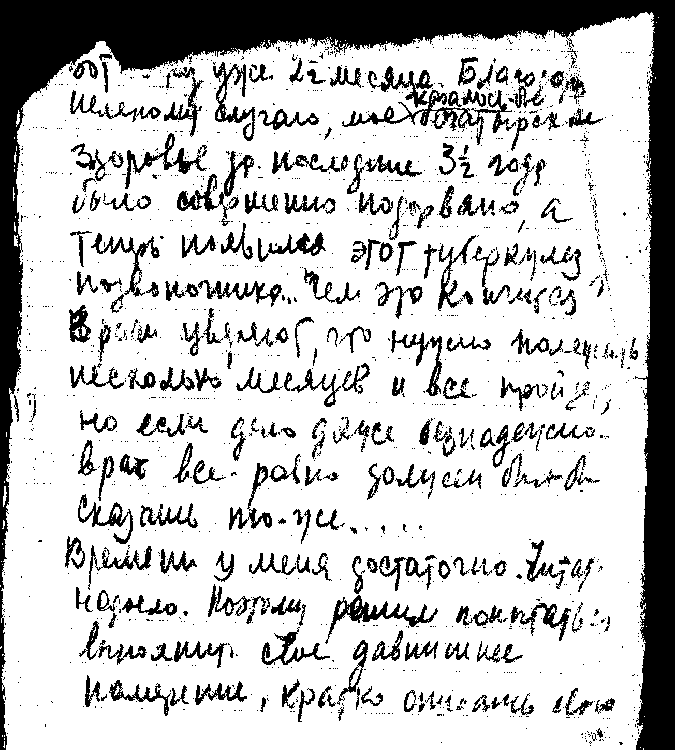 уже 2½ месяца. Благодаря
нелепому случаю, мое казалось бы богатырское
здоровье за последние 3½ года
было совершенно подорвано, а
теперь появился этот туберкулез
позвоночника... Чем это кончится?
Врачи уверяют, что нужно полежать
несколько месяцев и все пройдет,
но если дело даже безнадежно.
врач все-равно должен был бы
сказать то-же.....
Времени у меня достаточно. Читать
надоело. Поэтому решил попытаться
выполнить свое давнишнее
намерение, кратко описать свою